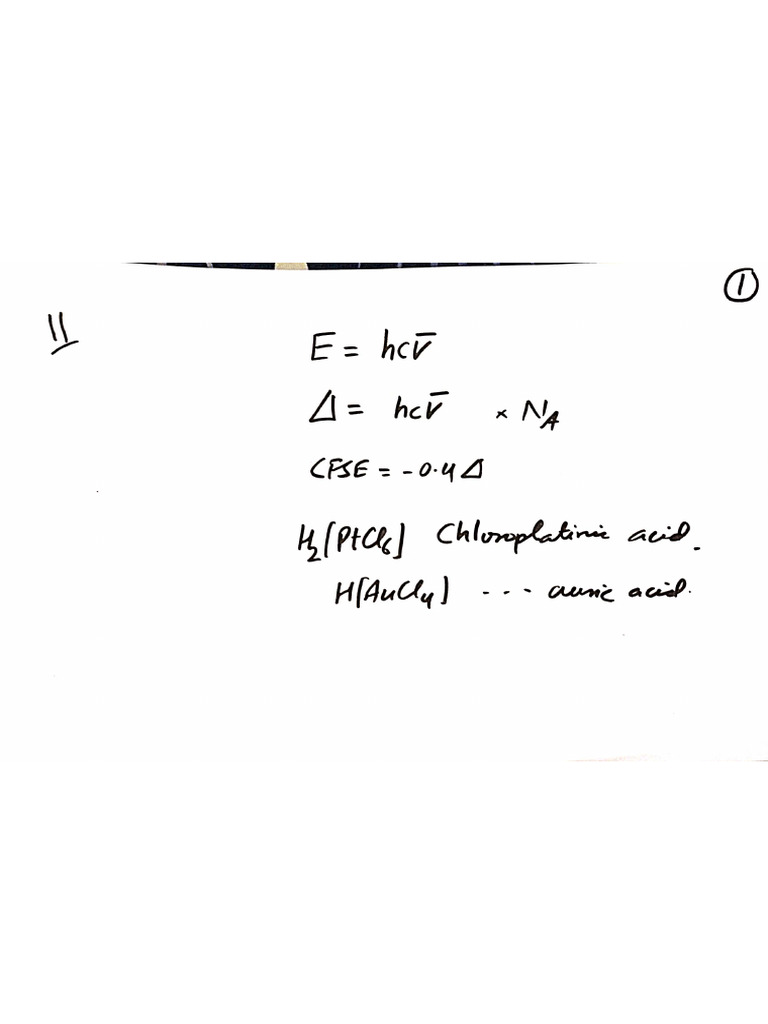 ①
11
E = hcν̅
Δ = hcν̅ × N_A
CFSE = -0.4Δ
H₂[PtCl₆] Chloroplatinic acid.
H[AuCl₄] --- auric acid.